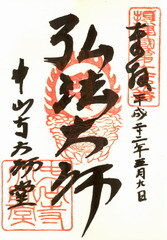 奉拝
平成廿二年三月九日
弘法大師
中山寺大師堂